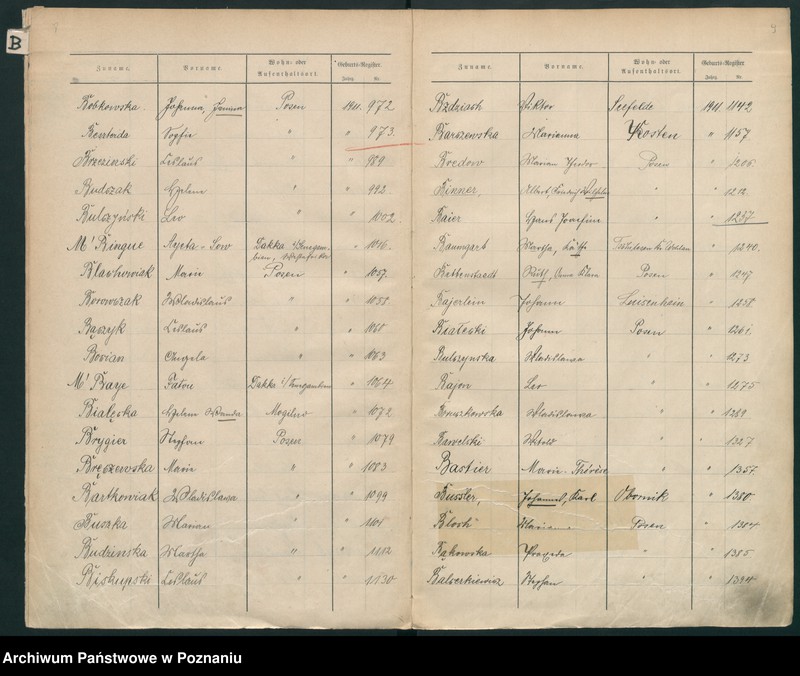 B
9
Zuname.
Vorname.
Wohn- oder Aufenthaltsort.
Geburts-Register
Nr.
Jahrg.
Nr.
Bobkowska Johanna, Posen 1911. 972
Sophie " " 973.
Brzezinski Ceslaus " " 989
Budczak Helene " " 992
Bulczyński Leo " " 1002
M' Bingue Ayota - Sow Dakka " 1046.
Marie Posen " 1057
Borowczak Wladislaus " " 1058
Bączyk Ceslaus " " 1060
Bovian Angela " " 1063
M' Baye Fatou Dakka " 1064
Białęska Helene Wanda Mogilno " 1072
Brygier Stephan Posen " 1079
Marie " " 1083
Bartkowiak Wladislawa " " 1099
Buszka Marian " " 1101
Budzinska Martha " " 1112
Biskupski Ceslaus " " 1130
Zuname.
Vorname.
Wohn- oder Aufenthaltsort.
Geburts-Register
Jahrg.
Nr.
Viktor Seefelde 1911 1142
Barczewska Marianna Kosten " 1157
Bredow Marian Theodor Posen " 1206
Binner, Albert, Friedrich Wilhelm " " 1212
Baier Hans Joachim " " 1237
Baumgart Martha, Käthe " 1240.
Bettenstaedt Ruth, Anna Klara Posen " 1247
Bajerlein Johann Luisenhain " 1258
Białecki Johann Posen " 1261
Bulczynska Wladislawa " " 1273
Bajon Leo " " 1275
Wladislawa " " 1289
Bawelski Witold " " 1327
Bastier Marie-Thérèse " " 1357
Bussler, Johannes, Karl Obornik " 1380
Bloch Marianna Posen " 1384
Bąkowska Praxeda " " 1385
Balcerkiewicz Stephan " " 1394
Archiwum Państwowe w Poznaniu